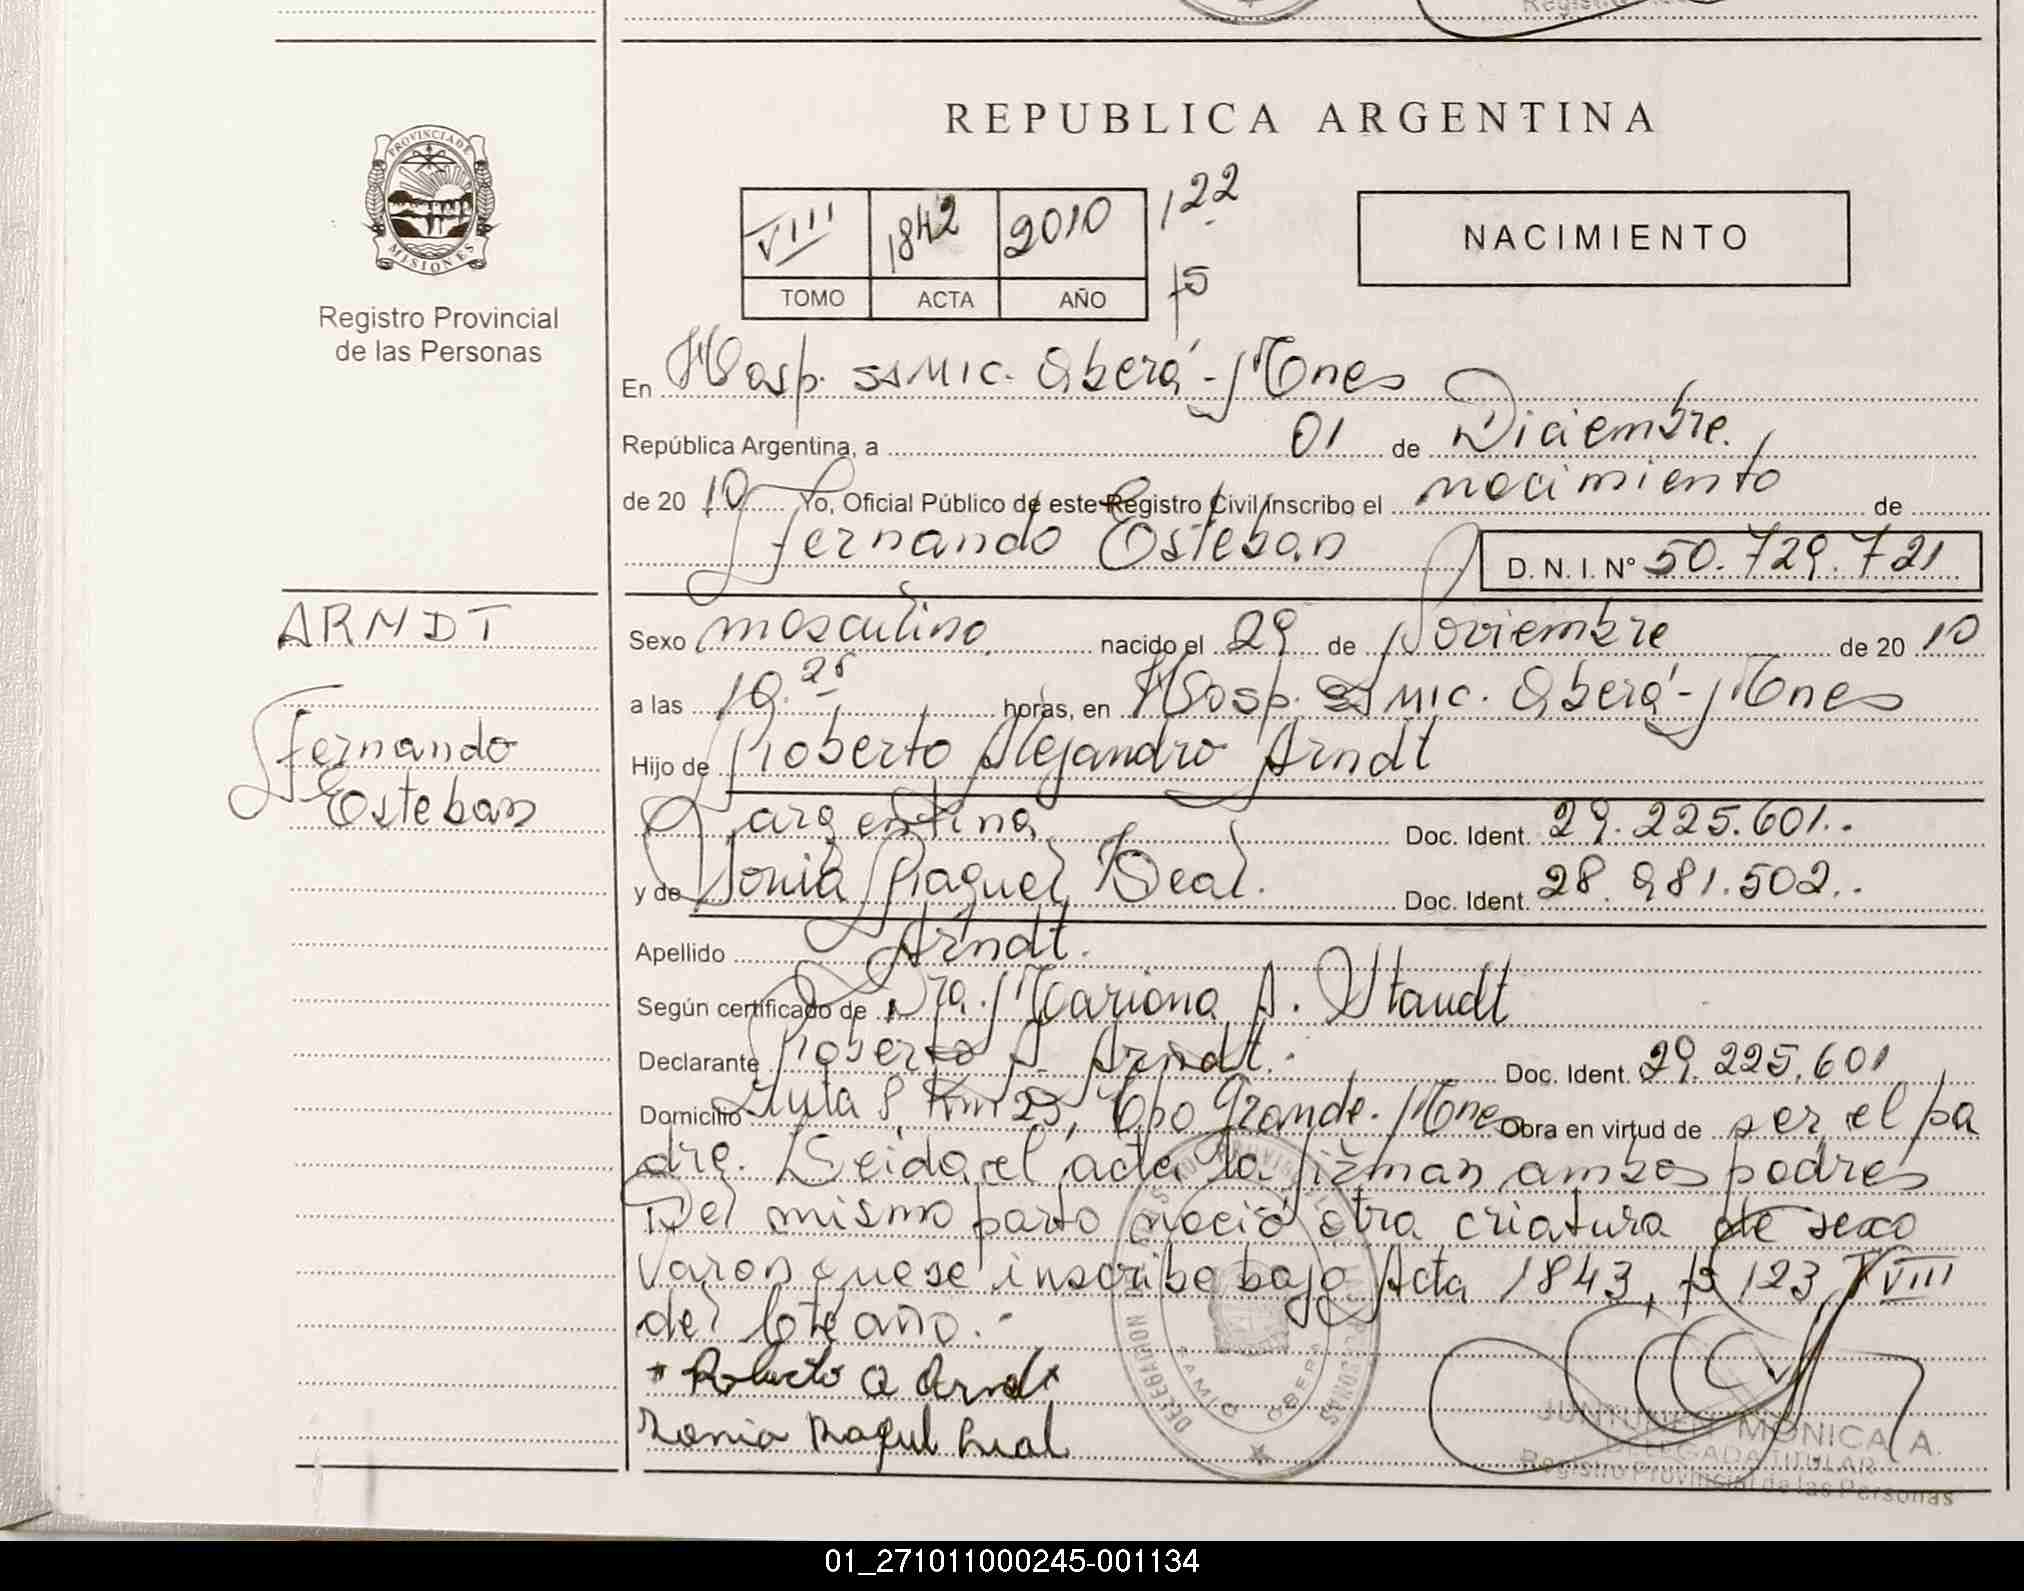 REPUBLICA ARGENTINA
PROVINCIA DE MISIONES
Registro Provincial
de las Personas
VIII 1842 2010 122
TOMO ACTA AÑO
NACIMIENTO
En Hosp. SAMIC. Oberá - Mnes
República Argentina, a 01 de Diciembre
de 2010 Yo, Oficial Público de este Registro Civil inscribo el nacimiento de
Fernando Esteban D. N. I. Nº 50.729.721
ARNDT
Fernando
Esteban
Sexo masculino nacido el 29 de Noviembre de 2010
a las 19.25 horas, en Hosp. SAMIC. Oberá - Mnes
Hijo de Roberto Alejandro Arndt
argentina Doc. Ident. 29.225.601..
y de Sonia Raquel Leal. Doc. Ident. 28.981.502..
Apellido Arndt.
Según certificado de Dra. Mariana A. Staudt
Declarante Roberto A. Arndt. Doc. Ident. 29.225.601
Domicilio Ruta 8, Km 23, Cpo Grande. Mnes Obra en virtud de ser el pa
dre. Leida el acta la firman ambos padres
Del mismo parto nació otra criatura de sexo
varon que se inscribe bajo Acta 1843, fº 123 T VIII
del cte año.-
Roberto A Arndt
Sonia Raquel Leal
DELEGACION SAMIC OBERA
JUNTUNEN MONICA A.
DELEGADA TITULAR
Registro Provincial de las Personas
01_271011000245-001134